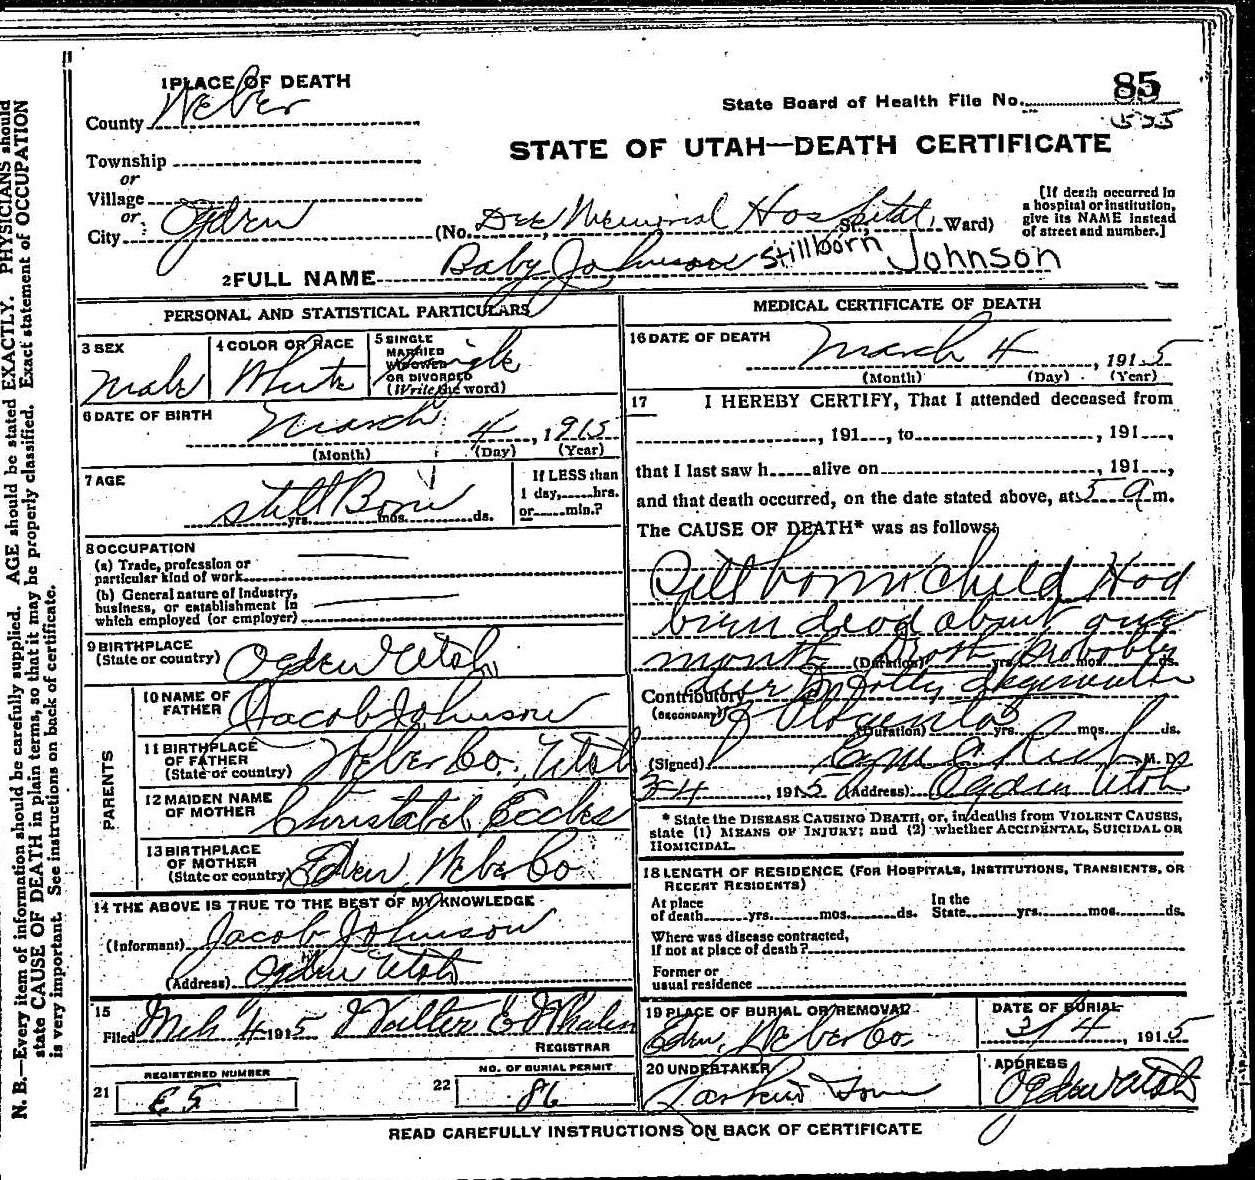 N. B.—Every item of information should be carefully supplied. AGE should be stated EXACTLY. PHYSICIANS should
state CAUSE OF DEATH in plain terms, so that it may be properly classified. Exact statement of OCCUPATION
is very important. See instructions on back of certificate.
1 PLACE OF DEATH
County Weber
State Board of Health File No. 85
STATE OF UTAH—DEATH CERTIFICATE
Township
or
Village
or
City Ogden
(No. Dee Memorial Hospital St.; Ward)
[If death occurred in
a hospital or institution,
give its NAME instead
of street and number.]
2 FULL NAME Baby Johnson Stillborn Johnson
PERSONAL AND STATISTICAL PARTICULARS
3 SEX
Male
4 COLOR OR RACE
White
5 SINGLE
MARRIED
WIDOWED
OR DIVORCED
(Write the word)
Single
6 DATE OF BIRTH
March 4, 1915
(Month) (Day) (Year)
7 AGE
Still Born
yrs. mos. ds.
If LESS than
1 day, hrs.
or min.?
8 OCCUPATION
(a) Trade, profession or
particular kind of work
(b) General nature of industry,
business, or establishment in
which employed (or employer)
9 BIRTHPLACE
(State or country)
Ogden Utah
PARENTS
10 NAME OF
FATHER
Jacob Johnson
11 BIRTHPLACE
OF FATHER
(State or country)
Weber Co., Utah
12 MAIDEN NAME
OF MOTHER
Christabel Eccles
13 BIRTHPLACE
OF MOTHER
(State or country)
Eden, Weber Co
14 THE ABOVE IS TRUE TO THE BEST OF MY KNOWLEDGE
(Informant) Jacob Johnson
(Address) Ogden Utah
15
Filed Mch 4 1915 Walter E Whalen
REGISTRAR
REGISTERED NUMBER
21
NO. OF BURIAL PERMIT
22 86
MEDICAL CERTIFICATE OF DEATH
16 DATE OF DEATH
March 4, 1915
(Month) (Day) (Year)
17 I HEREBY CERTIFY, That I attended deceased from
, 191 , to , 191 ,
that I last saw h alive on , 191 ,
and that death occurred, on the date stated above, at 5 a m.
The CAUSE OF DEATH* was as follows:
Still born child Had
been dead about one
month Death probably
(Duration) yrs. mos. ds.
due to fatty degeneration
Contributory
(SECONDARY)
of Placenta
(Duration) yrs. mos. ds.
(Signed) Rich M. D.
3-4, 1915 (Address) Ogden Utah
* State the DISEASE CAUSING DEATH, or, in deaths from VIOLENT CAUSES,
state (1) MEANS OF INJURY; and (2) whether ACCIDENTAL, SUICIDAL OR
HOMICIDAL.
18 LENGTH OF RESIDENCE (FOR HOSPITALS, INSTITUTIONS, TRANSIENTS, OR
RECENT RESIDENTS)
At place
of death yrs. mos. ds.
In the
State yrs. mos. ds.
Where was disease contracted,
if not at place of death?
Former or
usual residence
19 PLACE OF BURIAL OR REMOVAL
Eden, Weber Co.
DATE OF BURIAL
3/4, 1915
20 UNDERTAKER
Larkin & Sons
ADDRESS
Ogden Utah
READ CAREFULLY INSTRUCTIONS ON BACK OF CERTIFICATE